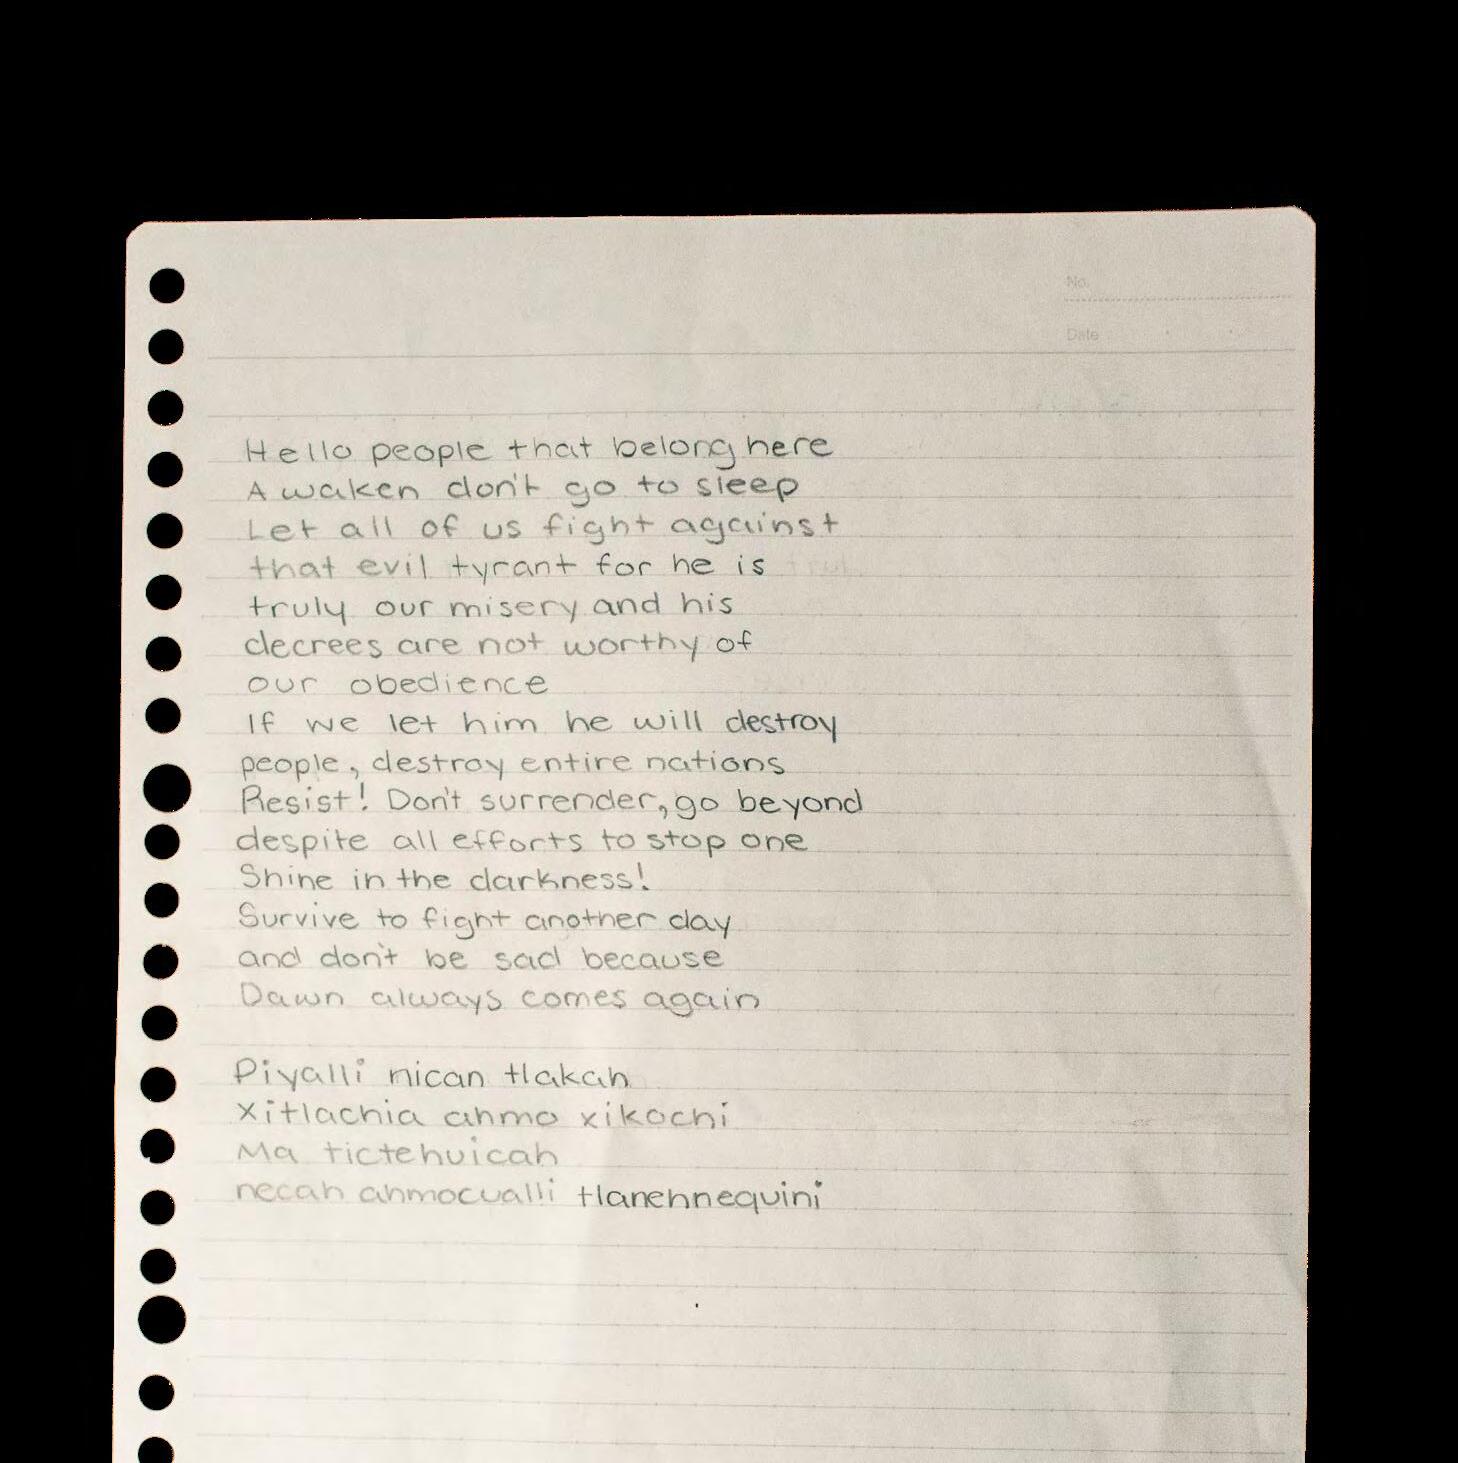 No.
Date
Hello people that belong here
Awaken don't go to sleep
Let all of us fight against
that evil tyrant for he is
truly our misery and his
decrees are not worthy of
our obedience
If we let him he will destroy
people, destroy entire nations
Resist! Don't surrender, go beyond
despite all efforts to stop one
Shine in the darkness!
Survive to fight another day
and don't be sad because
Dawn always comes again
Piyalli nican tlakah
Xitlachia ahmo xikochi
Ma tictehuicah
necah ahmocualli tlanehnequini